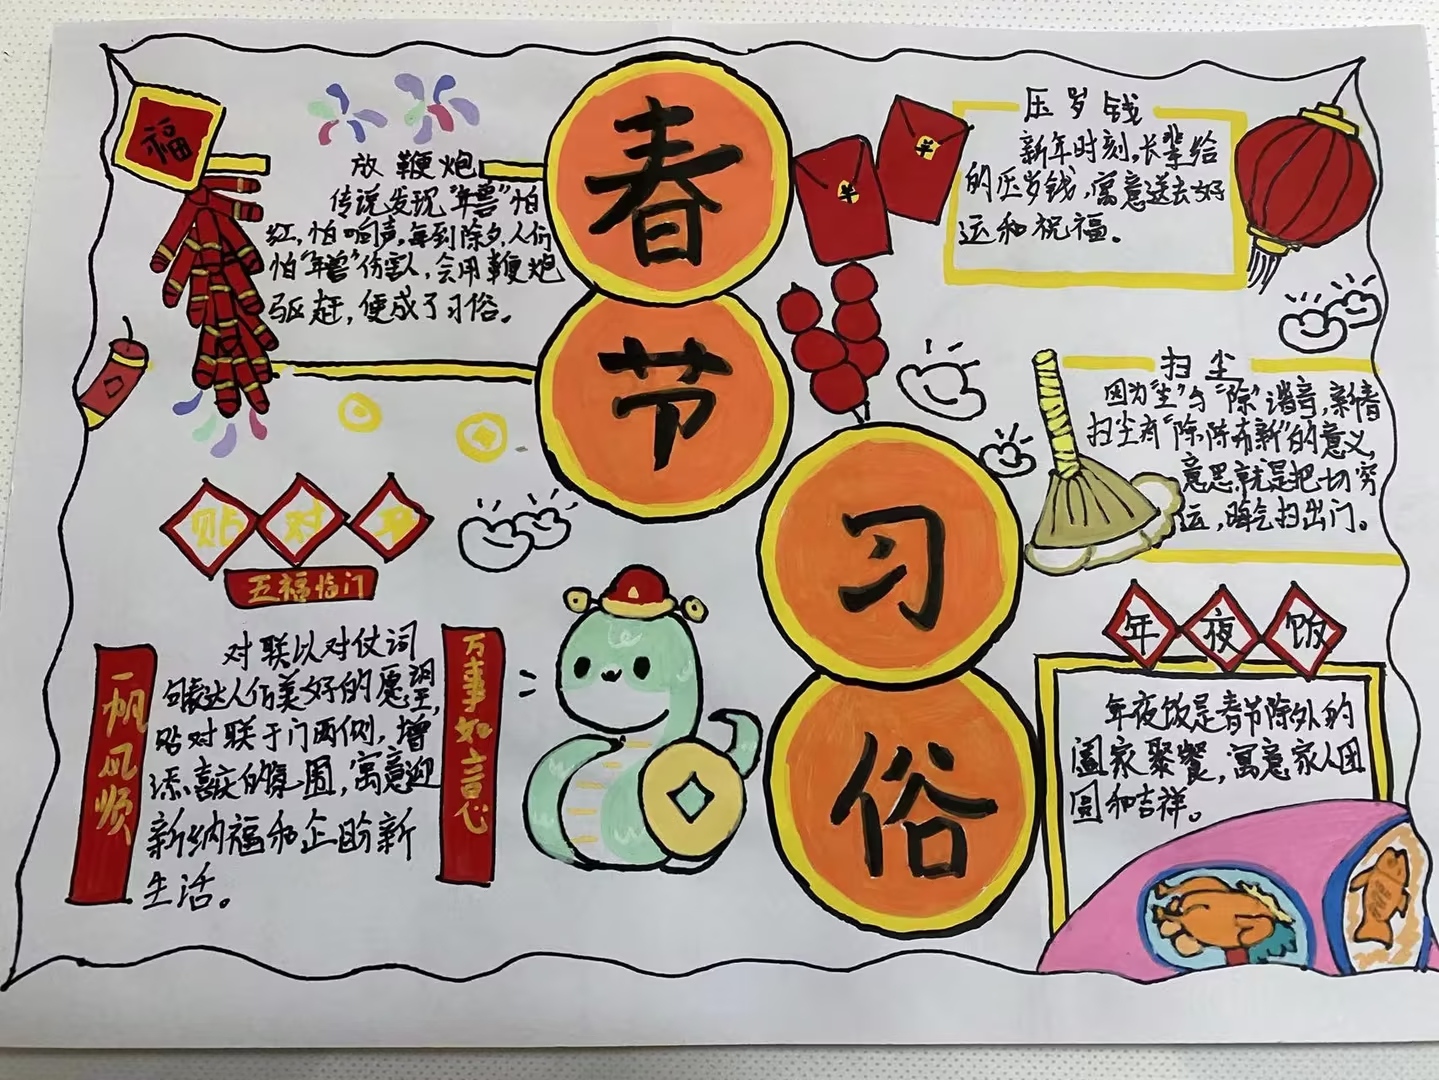 福
春
节
习
俗
放鞭炮
传说发现"年兽"怕
红,怕响声,每到除夕,人们
怕"年兽"伤害人,会用鞭炮
驱赶,便成了习俗。
压岁钱
新年时刻,长辈给
的压岁钱,寓意送去好
运和祝福。
扫尘
因为"尘"与"除"谐音,新春
扫尘有"除陈布新"的意义,
意思就是把一切穷
运,晦气扫出门。
贴对
五福临门
一帆风顺
万事如意
对联以对仗词
句表达人们美好的愿望,
贴对联于门两侧,增
添喜庆的氛围,寓意迎
新纳福和企盼新
生活。
年夜饭
年夜饭是春节除外的
阖家聚餐,寓意家人团
圆和吉祥。